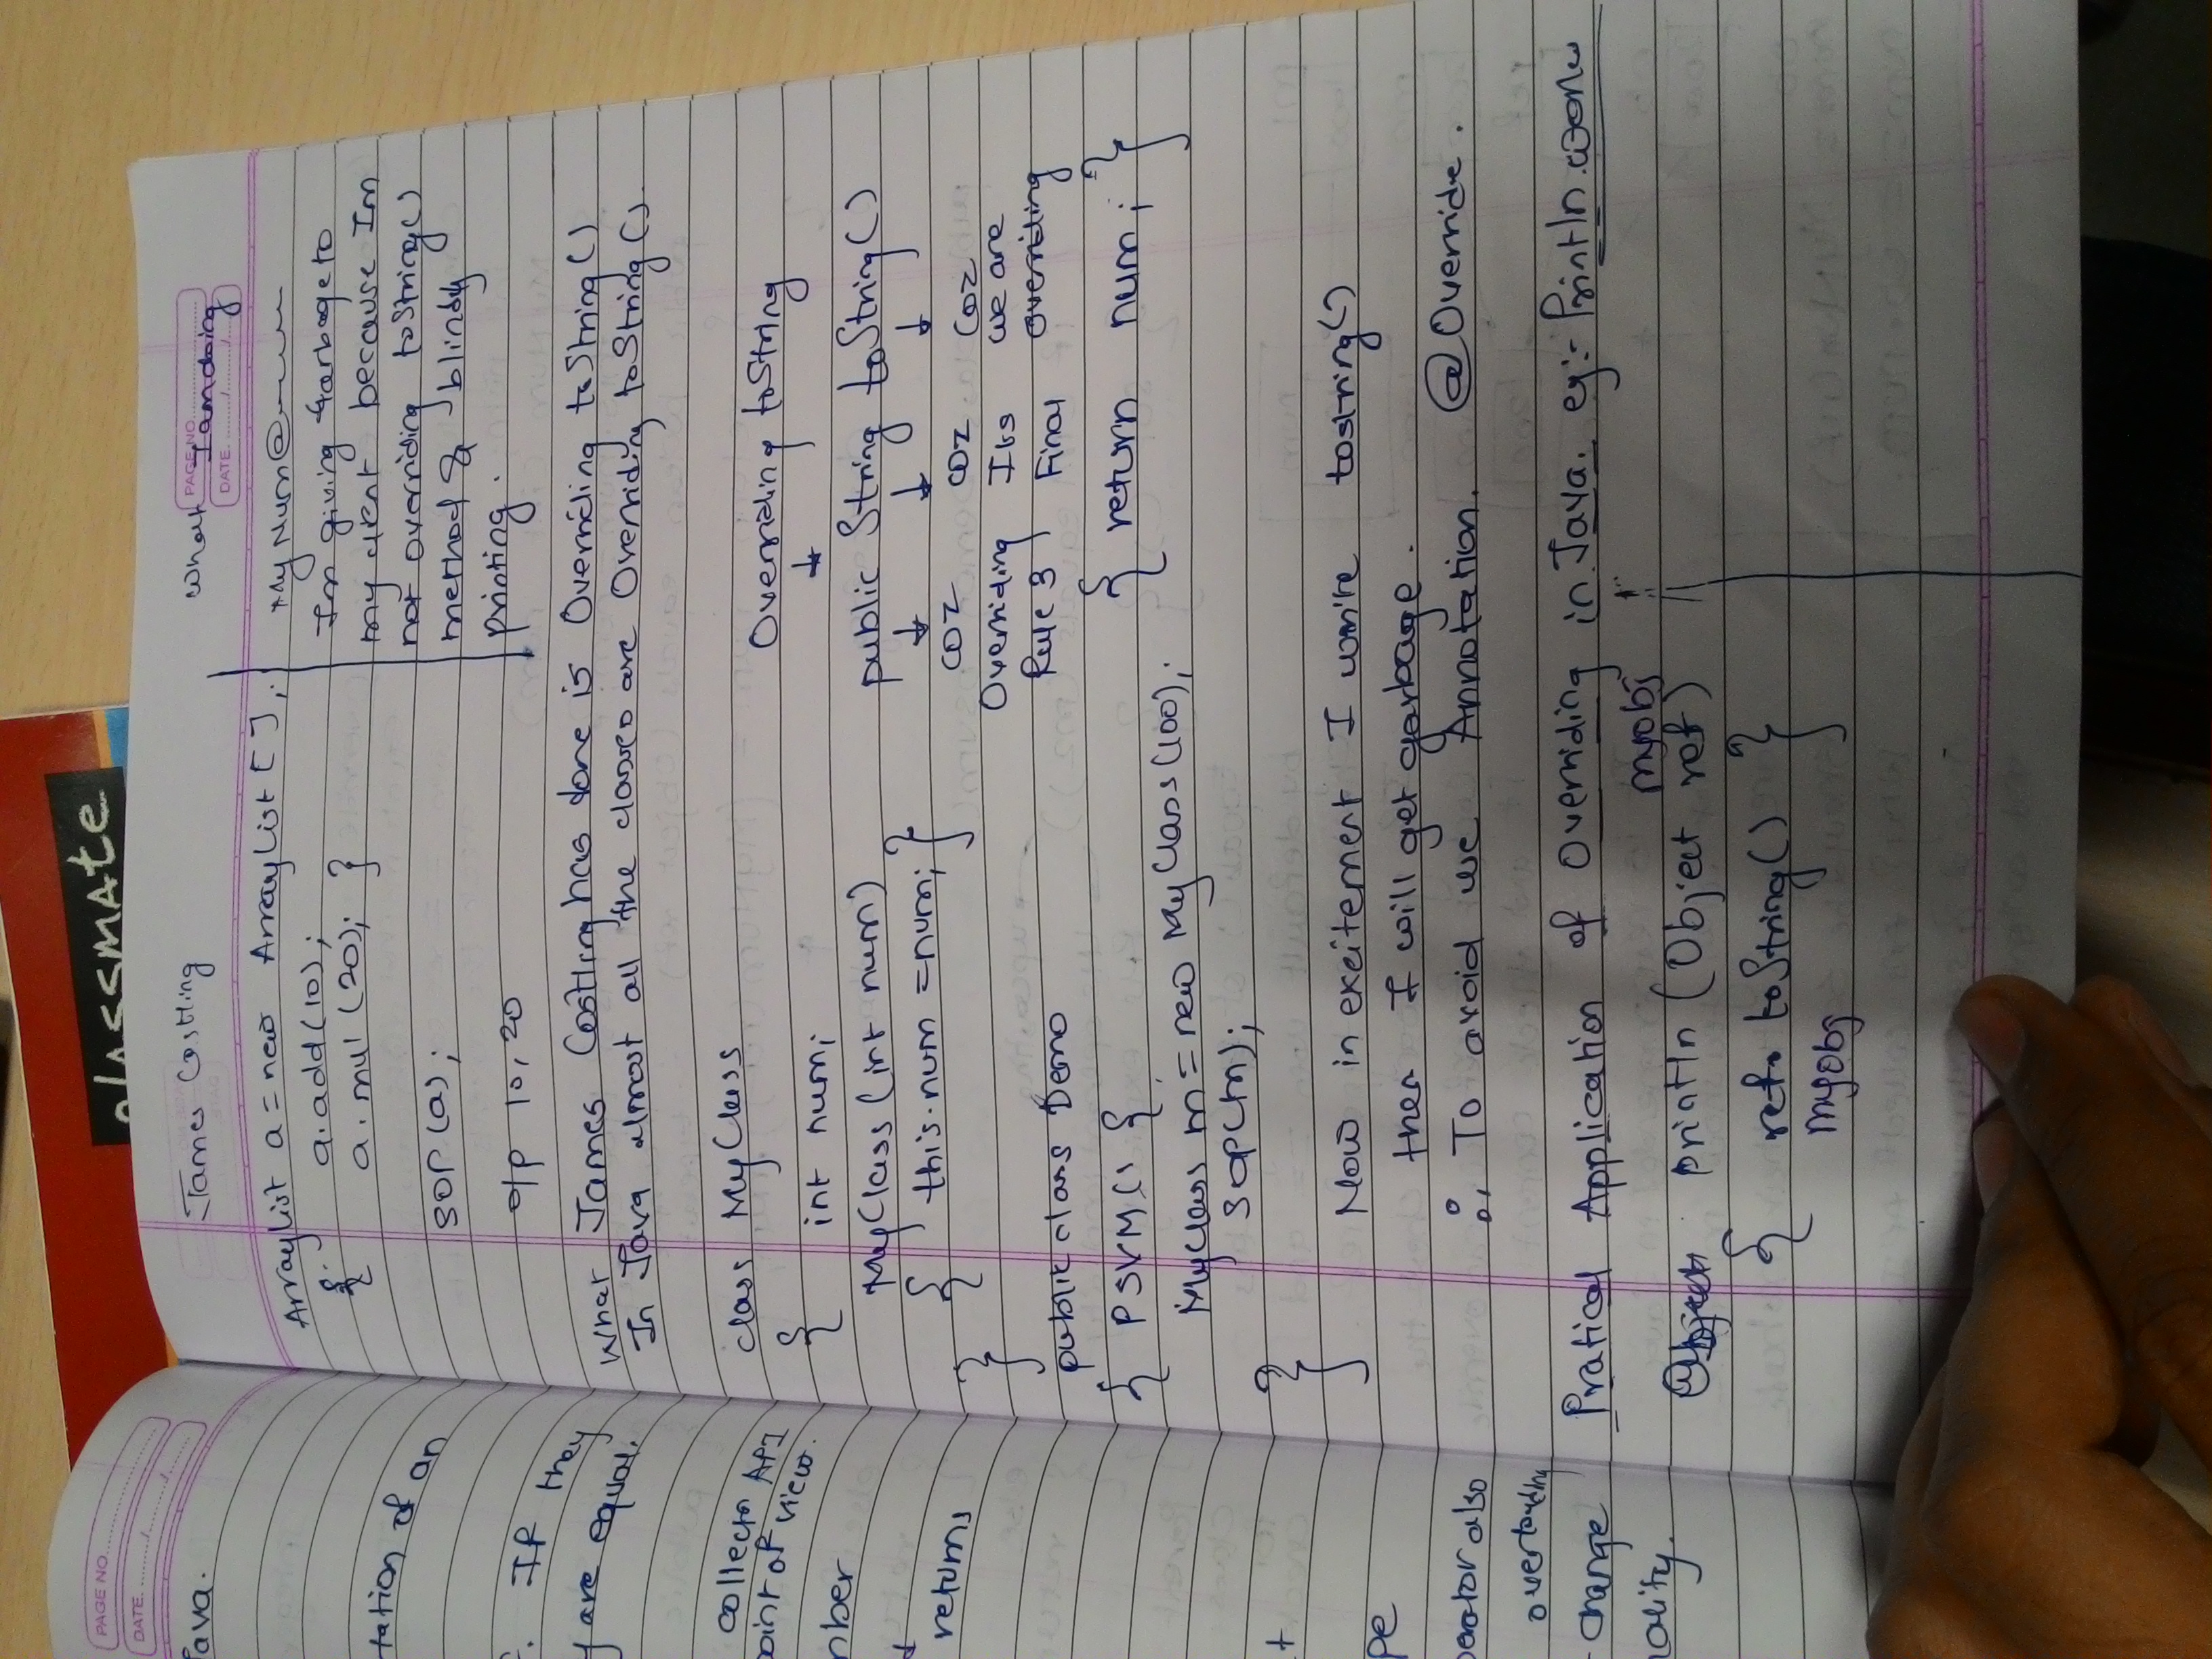 classmate
PAGE NO.
DATE.
Java.
tation of an
If they
y are equal.
collectn API
point of view.
nber
returns
+
pe
perator also
overloading
change
nality.
James Costling
What I am doing
PAGE NO.
DATE.
ArrayList a = new ArrayList [ ];
{ a.add(10);
a.mul(20); }
SOP(a);
o/p 10, 20
MyNum@
Im giving Garbage to
my client because Im
not overriding toString()
method & blindly
printing.
What James Costling has done is Overriding toString()
In Java almost all the classes are Overriding toString().
class MyClass
{ int num;
MyClass (int num)
{ this.num = num; }
}
public class Demo
{ PSVM() {
MyClass m = new MyClass(100);
SOP(m);
}
}
Overriding toString
↓
public String toString()
↓ ↓ ↓
COZ COZ COZ
Overriding Its we are
Rule 3 Final overriding
{ return num; }
Now in excitement I write tostring()
then I will get garbage.
∴ To avoid we Annotation. @Override.
Pratical Application of Overriding in Java. eg:- Println
myobj
println (Object ref)
{ ref. toString() }
myobj